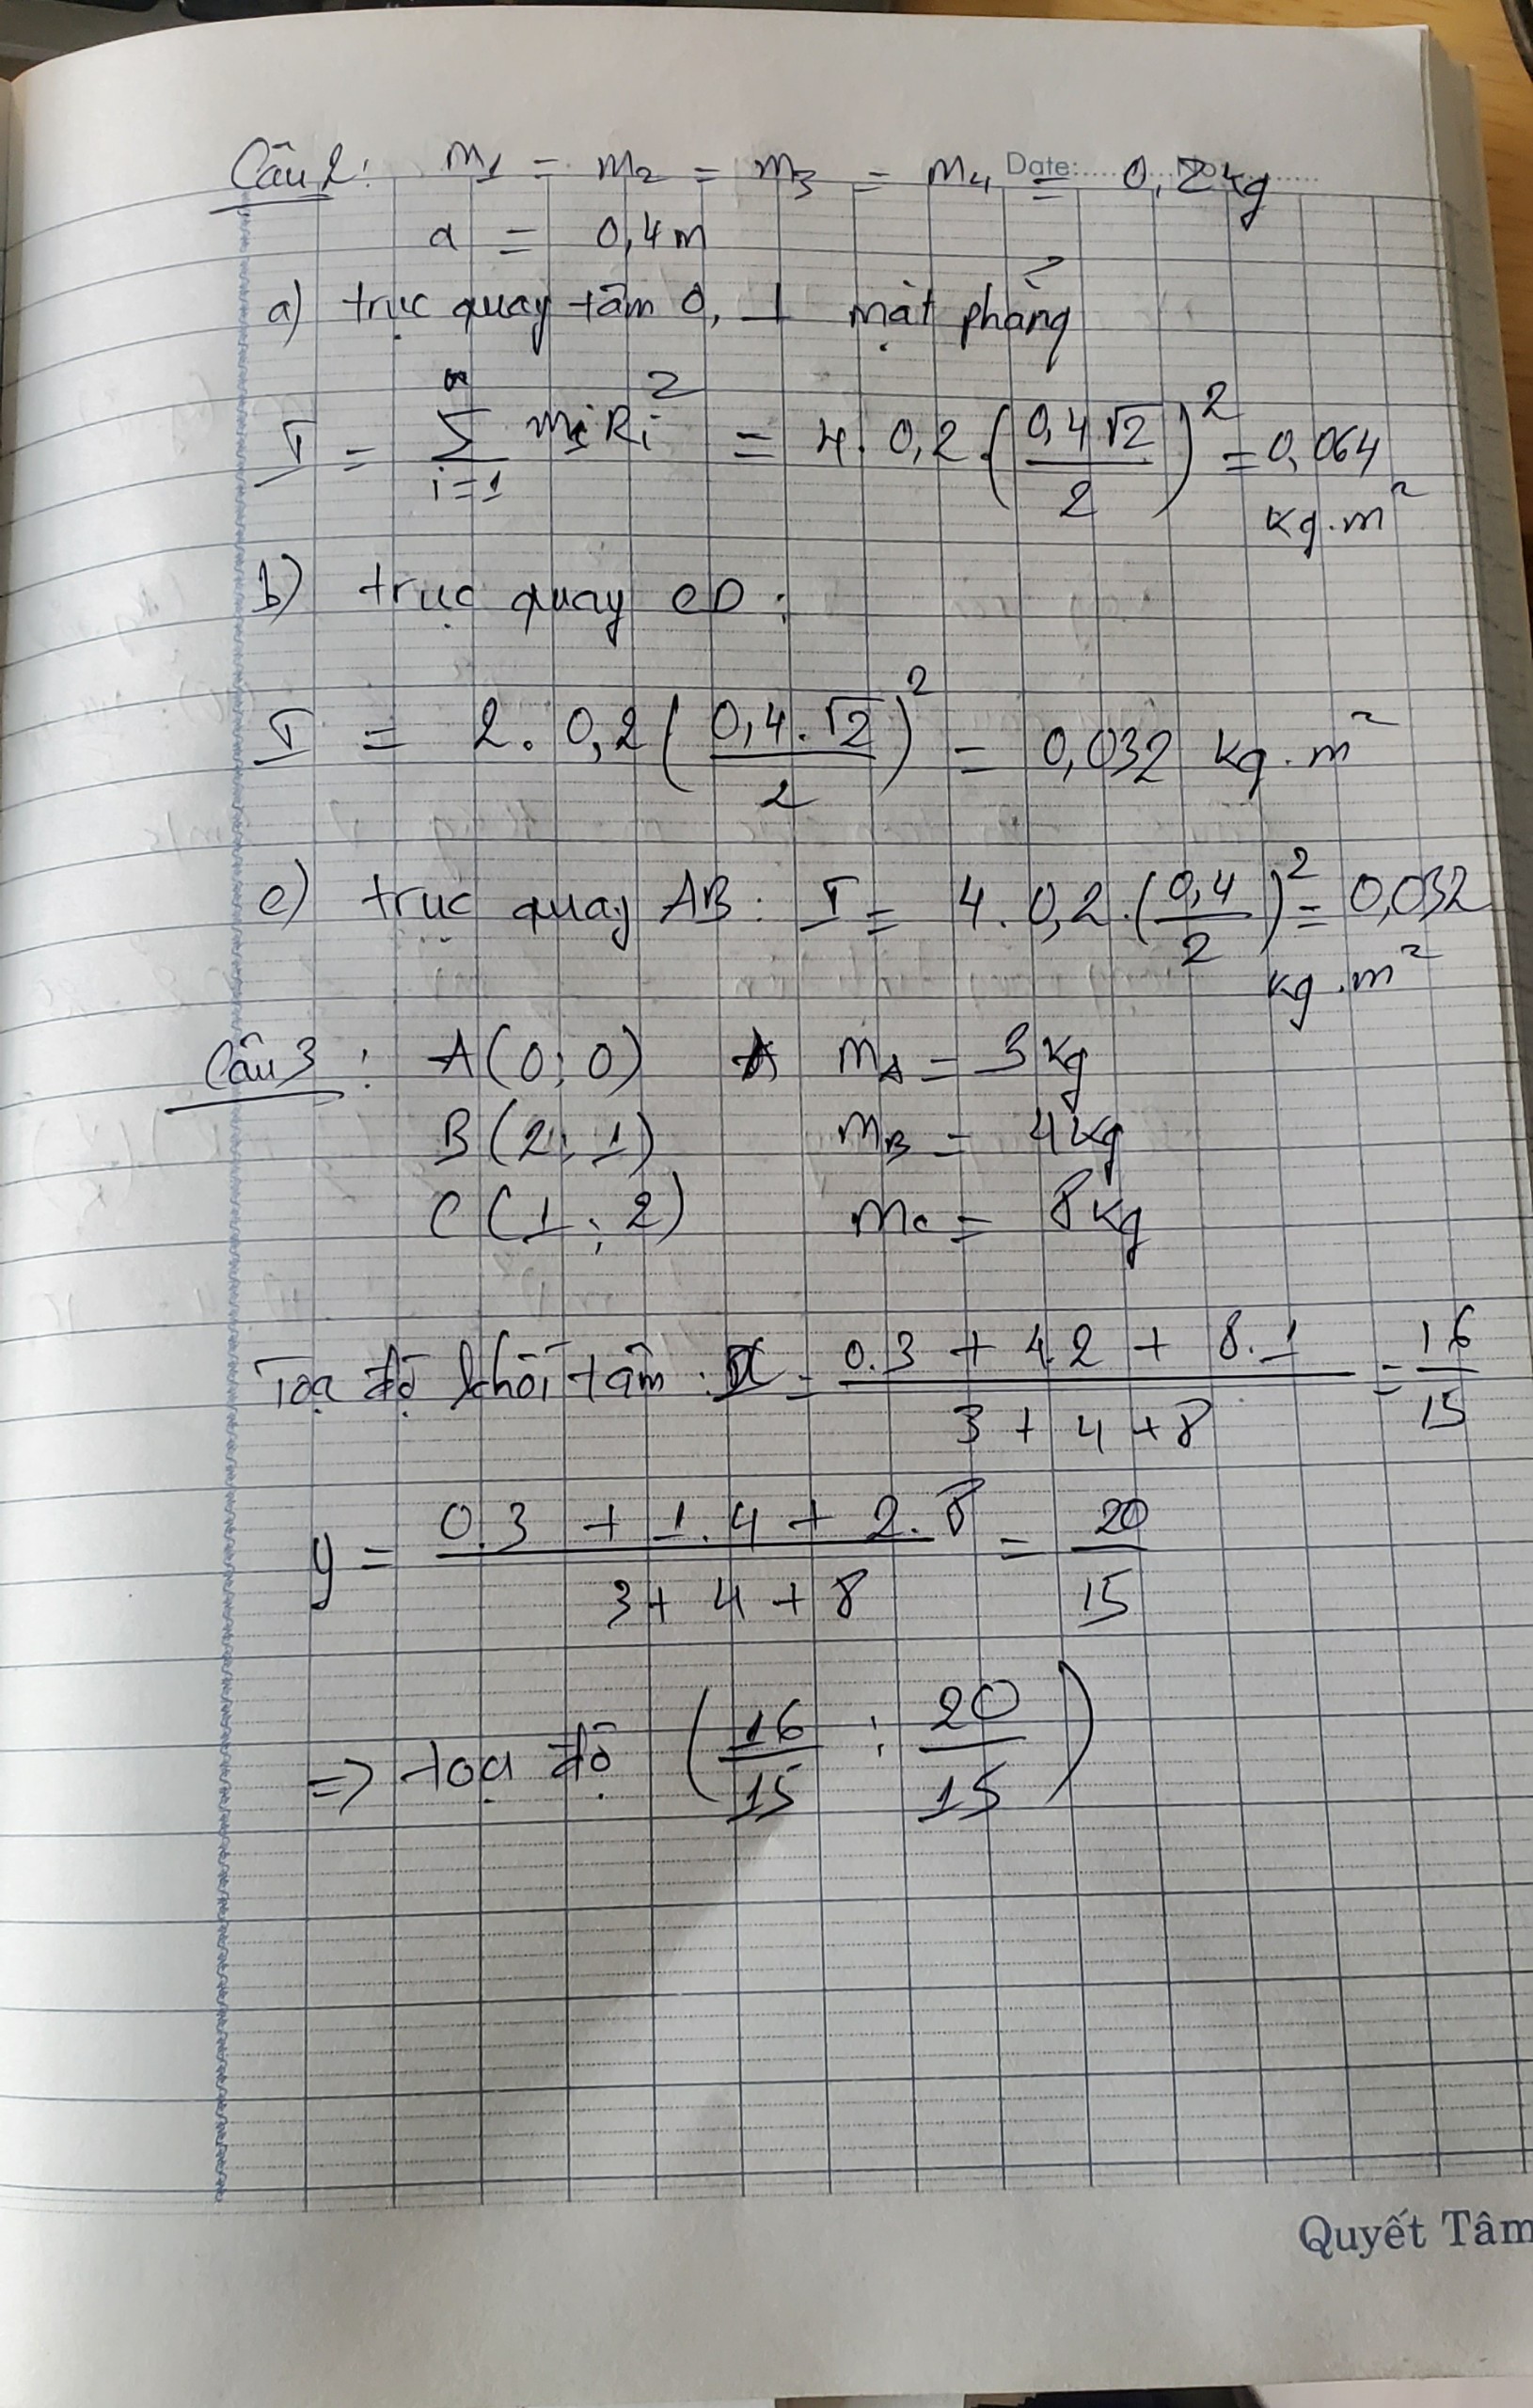 Date:.............No...........
Câu 2: m₁ = m₂ = m₃ = m₄ = 0,2kg
a = 0,4m
a) trục quay tâm O, ⊥ mặt phẳng
I = Σ (i=1, n) mᵢRᵢ² = 4.0,2.(0,4√2/2)² = 0,064
kg.m²
b) trục quay CD:
I = 2.0,2(0,4.√2/2)² = 0,032 kg.m²
c) trục quay AB: I = 4.0,2.(0,4/2)² = 0,032
kg.m²
Câu 3: A(0;0) m_A = 3kg
B(2;1) m_B = 4kg
C(1;2) m_C = 8kg
Tọa độ khối tâm: x = (0.3 + 4.2 + 8.1)/(3 + 4 + 8) = 16/15
y = (0.3 + 1.4 + 2.8)/(3 + 4 + 8) = 20/15
=> tọa độ (16/15 ; 20/15)
Quyết Tâm